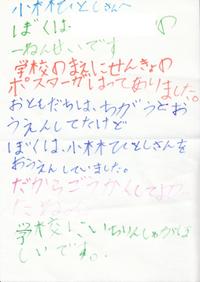 小林ひとしさんへ
ぼくは の
一ねんせいです
学校のまえにせんきょの
ポスターがはってありました。
おともだちは、ちがうとお
うえんしてたけど
ぼくは、小林ひとしさんを
おうえんしていました。
だからごうかくしてよか
学校にいちりんしゃがほ
しいです。